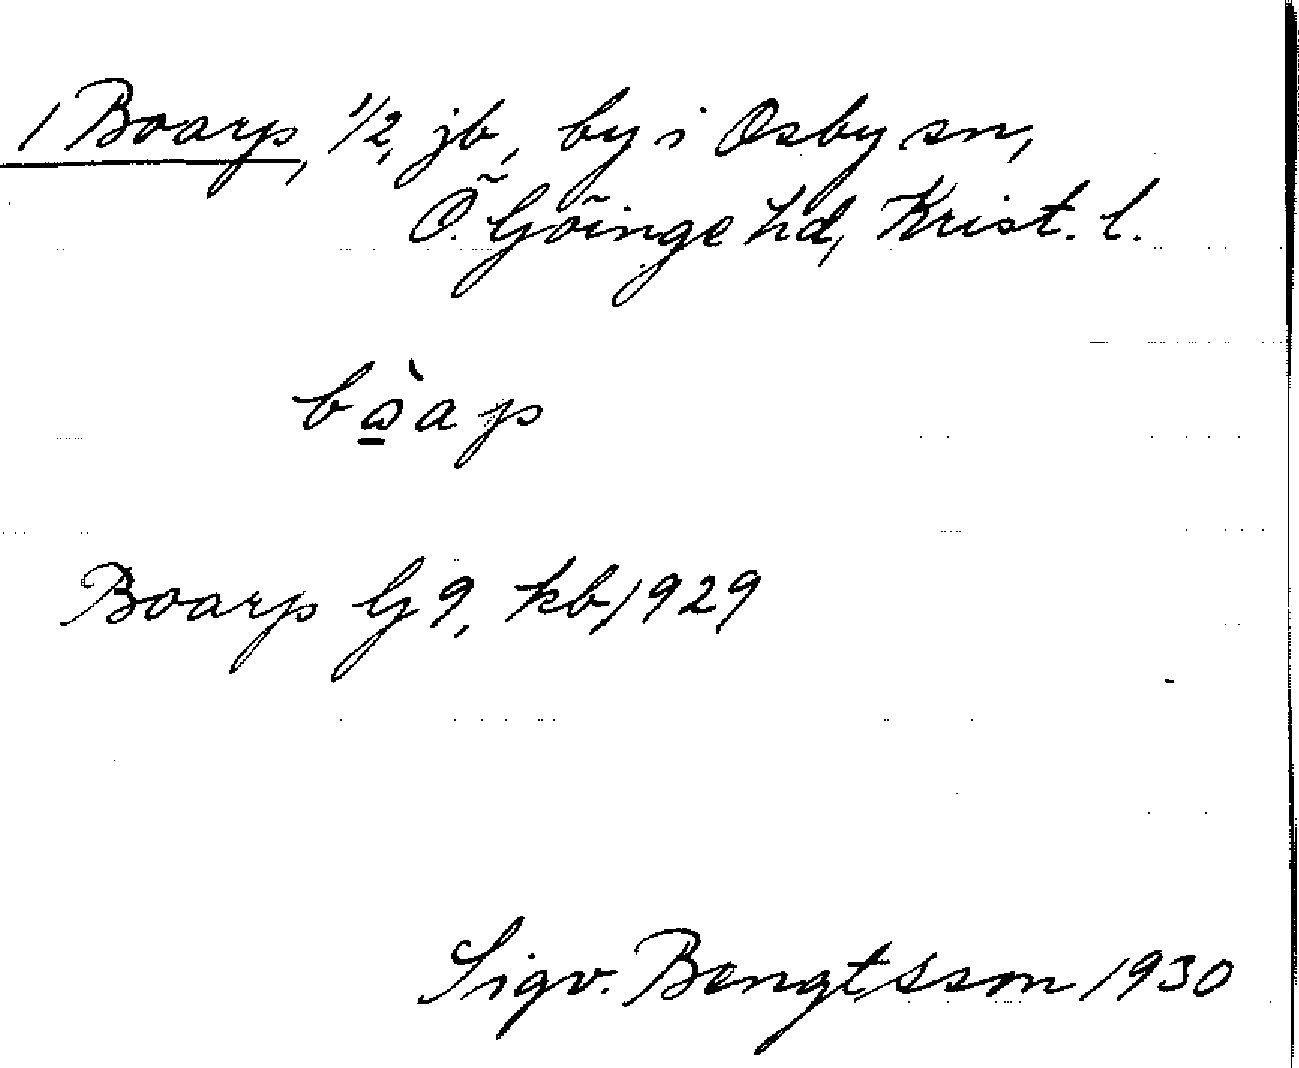 1 Boarp, 1/2, jb, by i Osby sn,
Ö. Göinge hd, Krist. l.
Boarp G 9, kb 1929
Sigv. Bengtsson 1930